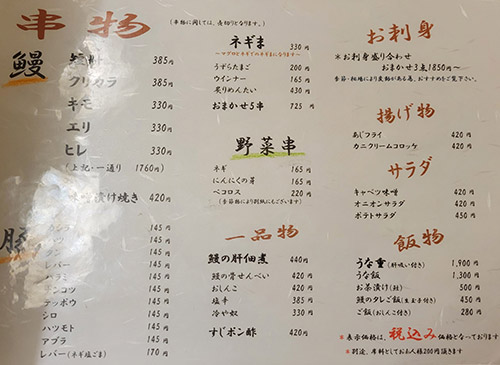 串物
(串物に関しては、売切りとなります)
鰻
385円
クリカラ 385円
キモ 330円
エリ 330円
ヒレ 330円
(上記・一通り 1760円)
漬け焼き 420円
豚
145円
145円
145円
レバー 145円
145円
145円
テッポウ 145円
シロ 145円
ハツモト 145円
アブラ 145円
レバー(ネギ塩ごま) 170円
ネギま 330円
~マグロとネギでのネギまになります~
うずらたまご 200円
ウインナー 165円
炙りめんたい 430円
おまかせ5串 725円
野菜串
ネギ 165円
にんにくの芽 165円
ペコロス 220円
(季節物により別紙にもございます)
一品物
鰻の肝佃煮 440円
鰻の骨せんべい 420円
おしんこ 420円
塩辛 385円
冷や奴 330円
すじポン酢 420円
お刺身
※お刺身盛り合わせ
おまかせ3点1850円~
季節・相場により変動がある為、おすすめをご覧下さい。
揚げ物
あじフライ 420円
カニクリームコロッケ 420円
サラダ
キャベツ味噌 220円
オニオンサラダ 420円
ポテトサラダ 450円
飯物
うな重(肝吸い付き) 1,900円
うな飯 1,300円
お茶漬け 500円
鰻のタレご飯(生玉子付き) 450円
ご飯(おしんこ付き) 280円
※表示価格は、税込み価格となっております
※別途、席料としてお1人様200円頂きます